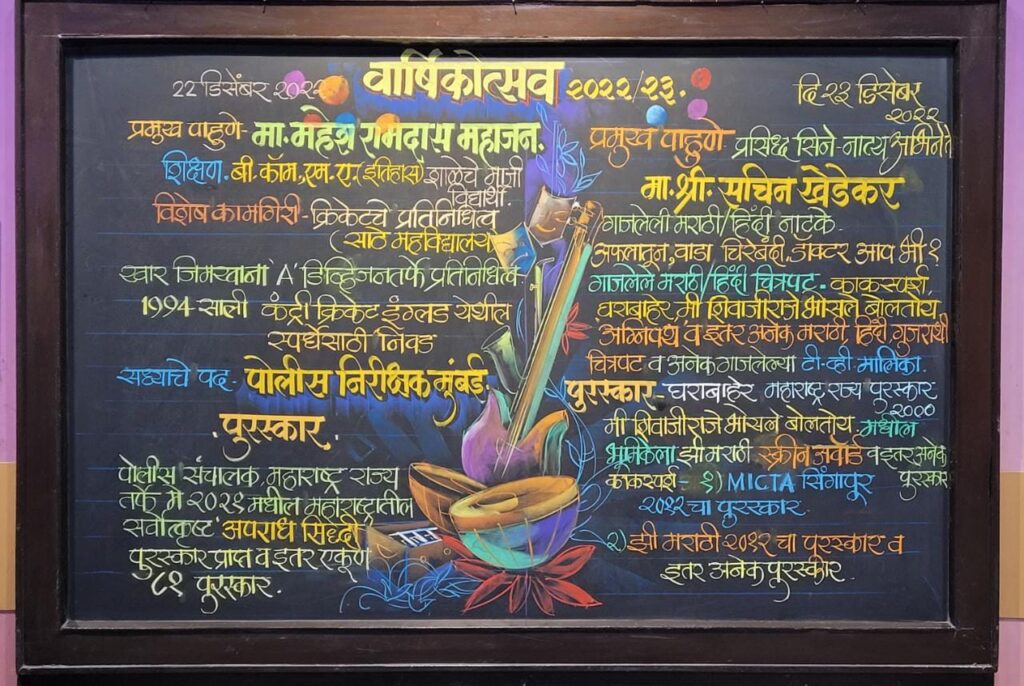 वार्षिकोत्सव २०२२/२३.
२२ डिसेंबर २०२२
प्रमुख पाहुणे- मा. महेश रामदास महाजन.
शिक्षण. बी. कॉम, एम. ए. (इतिहास) शाळेचे माजी
विद्यार्थी.
विशेष कामगिरी - क्रिकेटचे प्रतिनिधित्व
(साठे महाविद्यालय)
खार जिमखाना 'A' डिव्हिजनतर्फे प्रतिनिधित्व
1994 साली कंट्री क्रिकेट इंग्लड येथील
स्पर्धेसाठी निवड
सध्याचे पद - पोलीस निरीक्षक मुंबई.
. पुरस्कार.
पोलीस संचालक, महाराष्ट्र राज्य
तर्फे मे २०२१ मधील महाराष्ट्रातील
सर्वोत्कृष्ट 'अपराध सिद्धी'
पुरस्कार प्राप्त व इतर एकूण
८१ पुरस्कार.
दि-२३ डिसेंबर
२०२२
प्रमुख पाहुणे प्रसिध्द सिने-नाट्य अभिनेते
मा. श्री. सचिन खेडेकर
गाजलेली मराठी/हिंदी नाटके.
अफलातून, वाडा चिरेबंदी. डॉक्टर आप भी ?
गाजलेले मराठी/हिंदी चित्रपट - काकस्पर्श,
घराबाहेर, मी शिवाजीराजे भोसले बोलतोय
अग्निपथ व इतर अनेक मराठी, हिंदी, गुजराथी
चित्रपट व अनेक गाजलेल्या टी-व्ही मालिका.
पुरस्कार - घराबाहेर महाराष्ट्र राज्य पुरस्कार
2000
मी शिवाजीराजे भोसले बोलतोय - मधील
भूमिकेला झी मराठी स्क्रीन अवॉर्ड व इतर अनेक
पुरस्कार
काकस्पर्श - १) MICTA सिंगापूर
२०१२ चा पुरस्कार
२) झी मराठी २०१२ चा पुरस्कार व
इतर अनेक पुरस्कार.